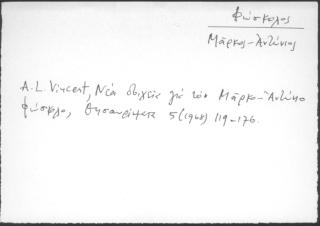 Φώσκολος
Μάρκος-Αντώνιος
A. L. Vincent, Νέα στοιχεία για τον Μάρκο-Αντώνιο
Φώσκολο, Θησαυρίσματα 5 (1968) 119-176.